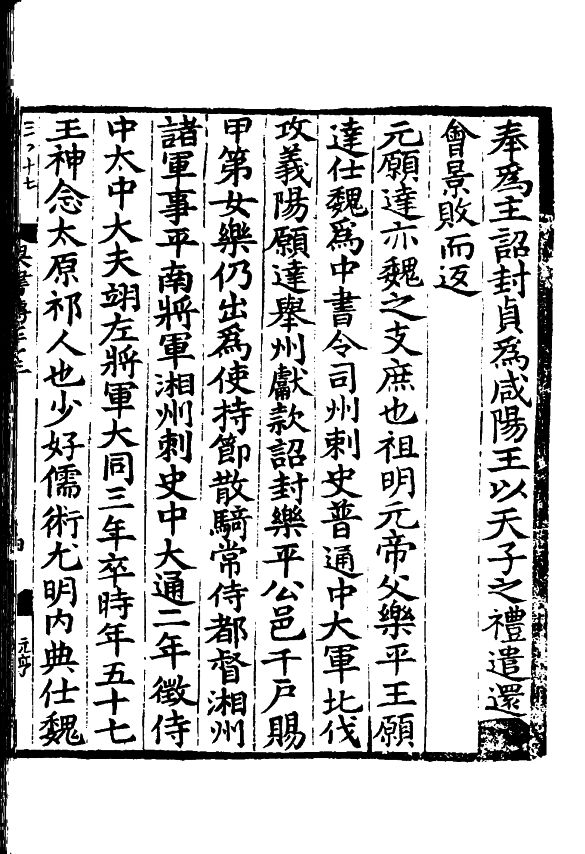 奉爲主詔封貞爲咸陽王以天子之禮遣還
會景敗而返
元願達亦魏之支庶也祖明元帝父樂平王願
達仕魏爲中書令司州刺史普通中大軍北伐
攻義陽願達舉州獻款詔封樂平公邑千戸賜
甲第女樂仍出爲使持節散騎常侍都督湘州
諸軍事平南將軍湘州刺史中大通二年徵侍
中太中大夫翊左將軍大同三年卒時年五十七
王神念太原祁人也少好儒術尤明内典仕魏